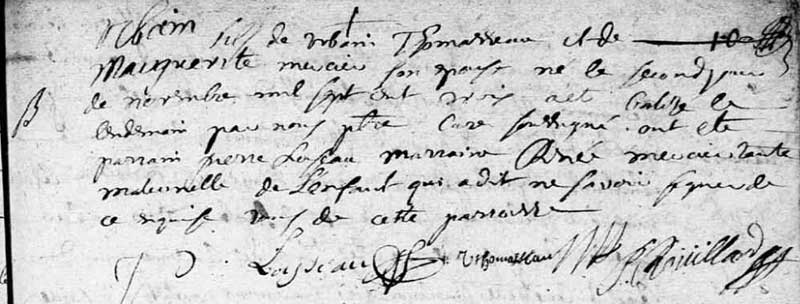 Urbain fils de Urbain Thomasseau et de
Marguerite mercier son epouse né le second jour
de novembre mil sept cent trois a esté batize le
B
lendemain par nous ptre Curé soussigné. ont ete
parrain pierre Loiseau marraine Renée mercier tante
maternelle de L'enfant qui a dit ne savoir signer de
ce enquise tous de cette parroisse
Loyseau U thomasseau